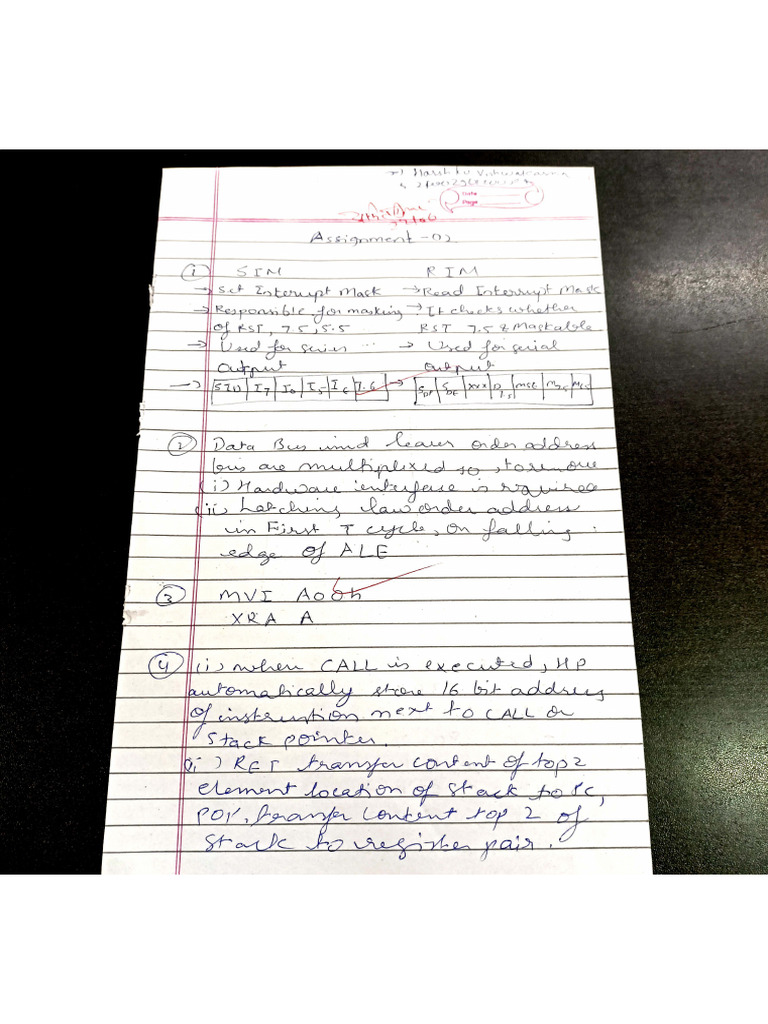 Date
Page
27/06
Assignment - 02
① SIM RIM
→ Set Interrupt Mask → Read Interrupt Mask
→ Responsible for masking → It checks whether
of RST, 7.5, 5.5 RST 7.5 & Maskable
→ Used for series ... → Used for serial
Output output
→ SID I7 I0 I5 I6 7.6 → XVX MSE
② Data Bus and lower order address
bus are multiplexed so, to remove
(i) Hardware interface is required
(ii) Latching low order address
in First T cycle, on falling
edge of ALE
③ MVI A00h
XRA A
④ (i) when CALL is executed, MP
automatically store 16 bit address
of instruction next to CALL on
Stack pointer.
(ii) RET transfer content of top 2
element location of stack to PC,
POP, transfer content top 2 of
stack to register pair.